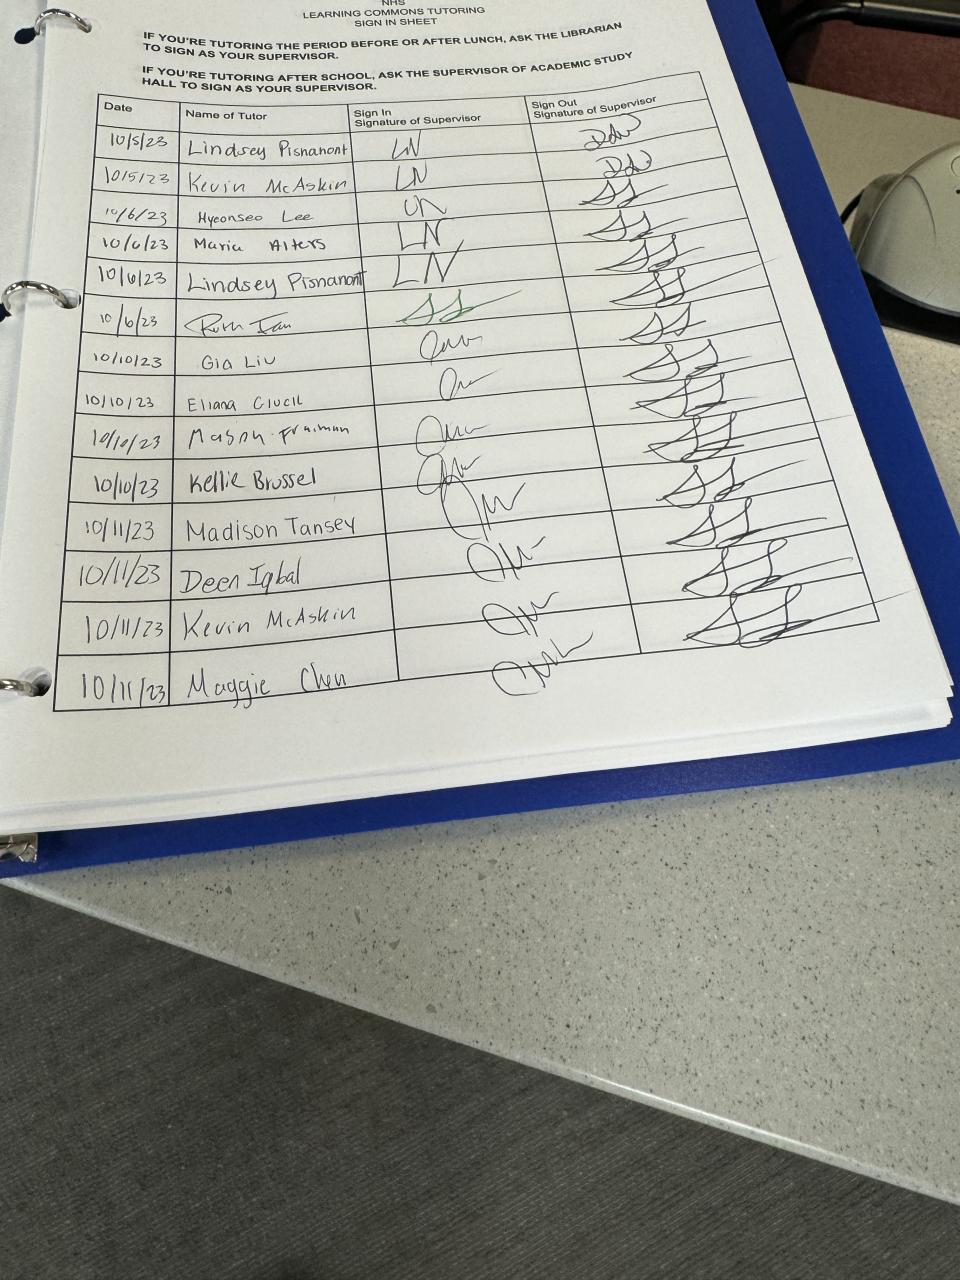 NHS
LEARNING COMMONS TUTORING
SIGN IN SHEET
IF YOU'RE TUTORING THE PERIOD BEFORE OR AFTER LUNCH, ASK THE LIBRARIAN
TO SIGN AS YOUR SUPERVISOR.
IF YOU'RE TUTORING AFTER SCHOOL, ASK THE SUPERVISOR OF ACADEMIC STUDY
HALL TO SIGN AS YOUR SUPERVISOR.
Date Name of Tutor Sign In Signature of Supervisor Sign Out Signature of Supervisor
10/5/23 Lindsey Pisnanont LN
10/5/23 Kevin McAskin LN
10/6/23 Hyeonseo Lee
10/6/23 Maria Alters LN
10/6/23 Lindsey Pisnanont LN
10/6/23 Ruth
10/10/23 Gia Liu
10/10/23 Eliana
10/10/23 Mason Fraiman
10/10/23 Kellie Brussel
10/11/23 Madison Tansey
10/11/23 Deen Iqbal
10/11/23 Kevin McAskin
10/11/23 Maggie Chen